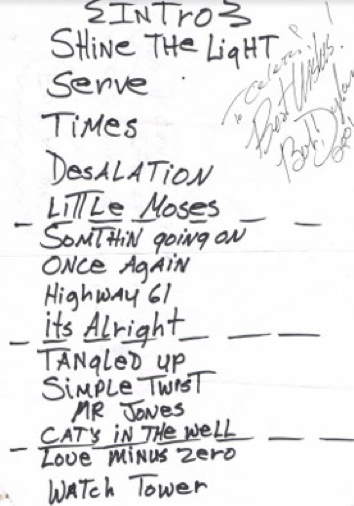 {INTRO}
SHINE THE LIGHT
Serve
TIMES
DesALATION
LITTLe Moses
SOMTHiN going ON
ONCe AgAiN
HighwAy 61
iTs Alright
TANgleD up
SiMPLe TwisT
MR JONes
CATs iN THe weLL
Love MiNus Zero
WATCH Tower
To
Best Wishes
Bob Dylan